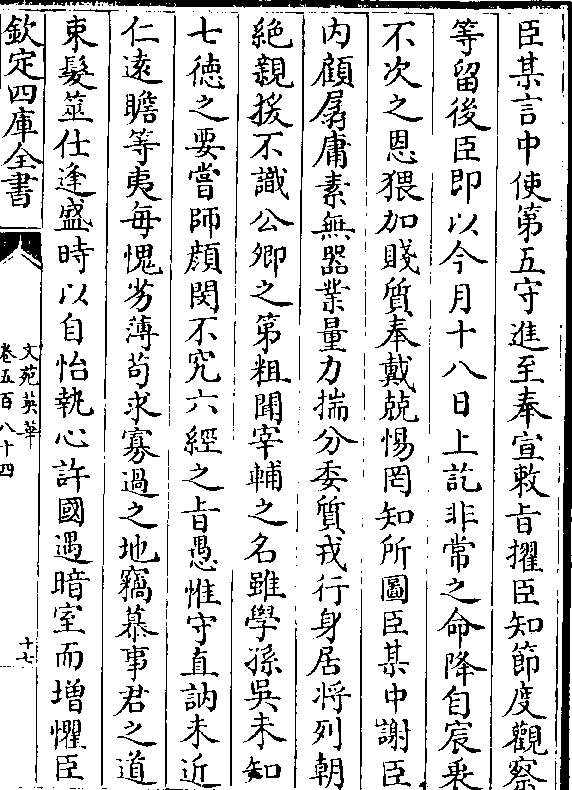 臣某言中使第五守進至奉宣敕㫖擢臣知節度觀察
等留後臣即以今月十八日上訖非常之命降自宸衷
不次之恩猥加賤質奉戴兢惕罔知所圖臣某中謝臣
内顧孱庸素無器業量力揣分委質戎行身居将列朝
絶親援不識公卿之第粗聞宰輔之名雖學孫吳未知
七徳之要嘗師顔閔不究六經之㫖愚惟守直訥未近
仁逺瞻等夷每愧劣薄苟求寡過之地竊慕事君之道
束髮筮仕逢盛時以自怡執心許國遇暗室而增懼臣
欽定四庫全書
文苑英華
卷五百八十四
十七